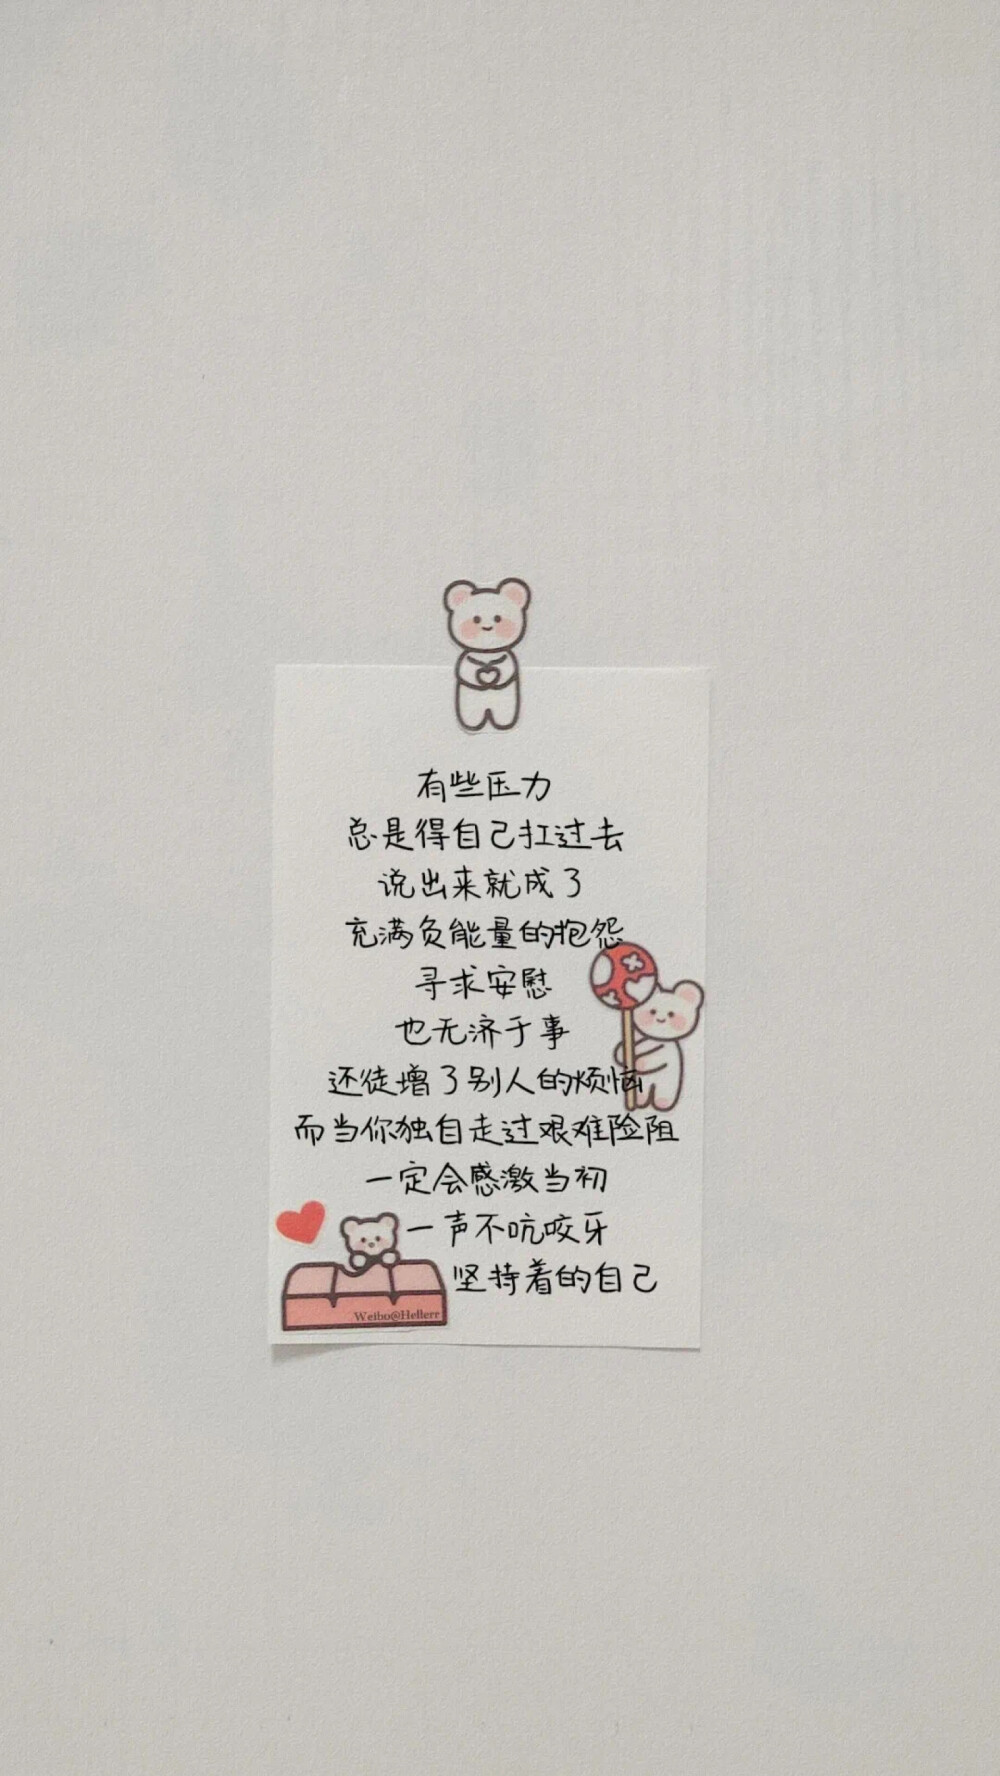 有些压力
总是得自己扛过去
说出来就成了
充满负能量的抱怨
寻求安慰
也无济于事
还徒增了别人的烦恼
而当你独自走过艰难险阻
一定会感激当初
一声不吭咬牙
坚持着的自己
Weibo@Hellerr